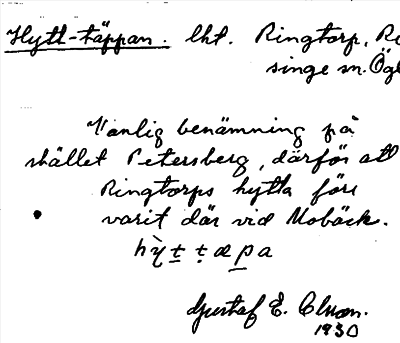 Hytt-täppan. lht. Ringtorp, R
singe sn. Ögl
Vanlig benämning på
stället Petersberg, därför att
Ringtorps hytta förr
varit där vid Mobäck.
hy̆ttæpa
Gustaf E.
1930